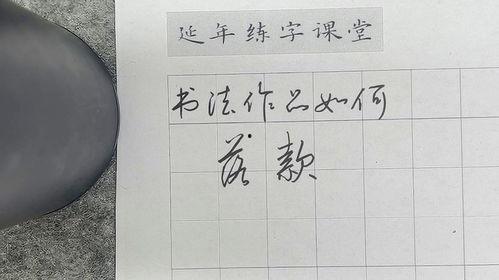 延年练字课堂
书法作品如何
落款